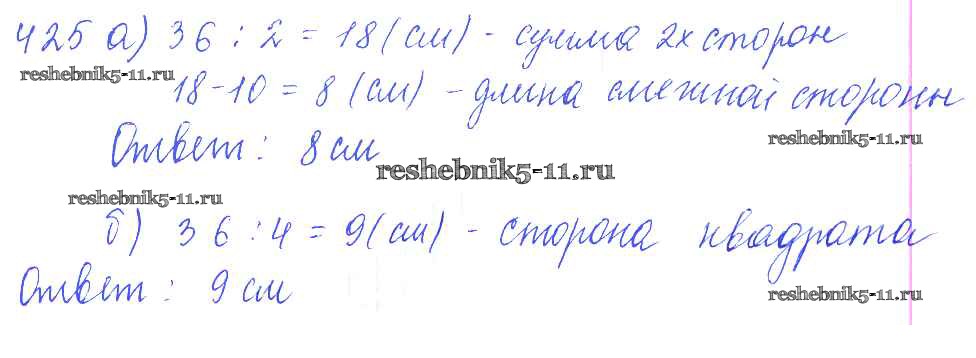 425 а) 36 : 2 = 18 (см) - сумма 2х сторон
reshebnik5-11.ru
18 - 10 = 8 (см) - длина смежной стороны
reshebnik5-11.ru
Ответ: 8 см
reshebnik5-11.ru
reshebnik5-11.ru
б) 36 : 4 = 9 (см) - сторона квадрата
Ответ: 9 см
reshebnik5-11.ru